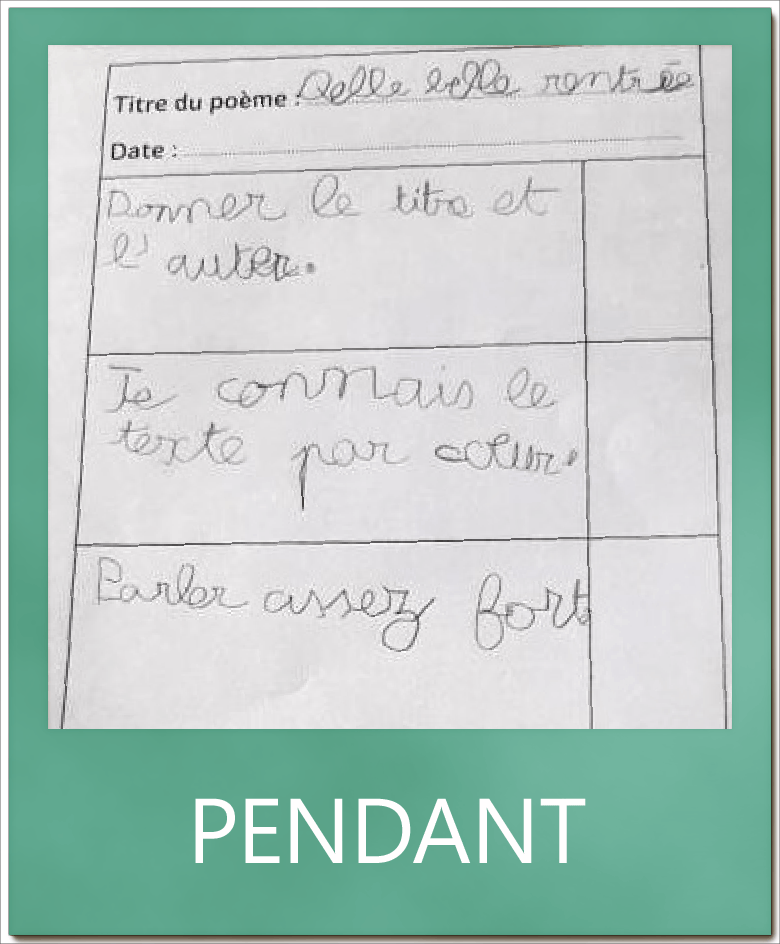 Titre du poème : Quelle belle rentrée
Date :
Donner le titre et
l'auter.
Je connais le
texte par coeur.
Parler assez fort
PENDANT